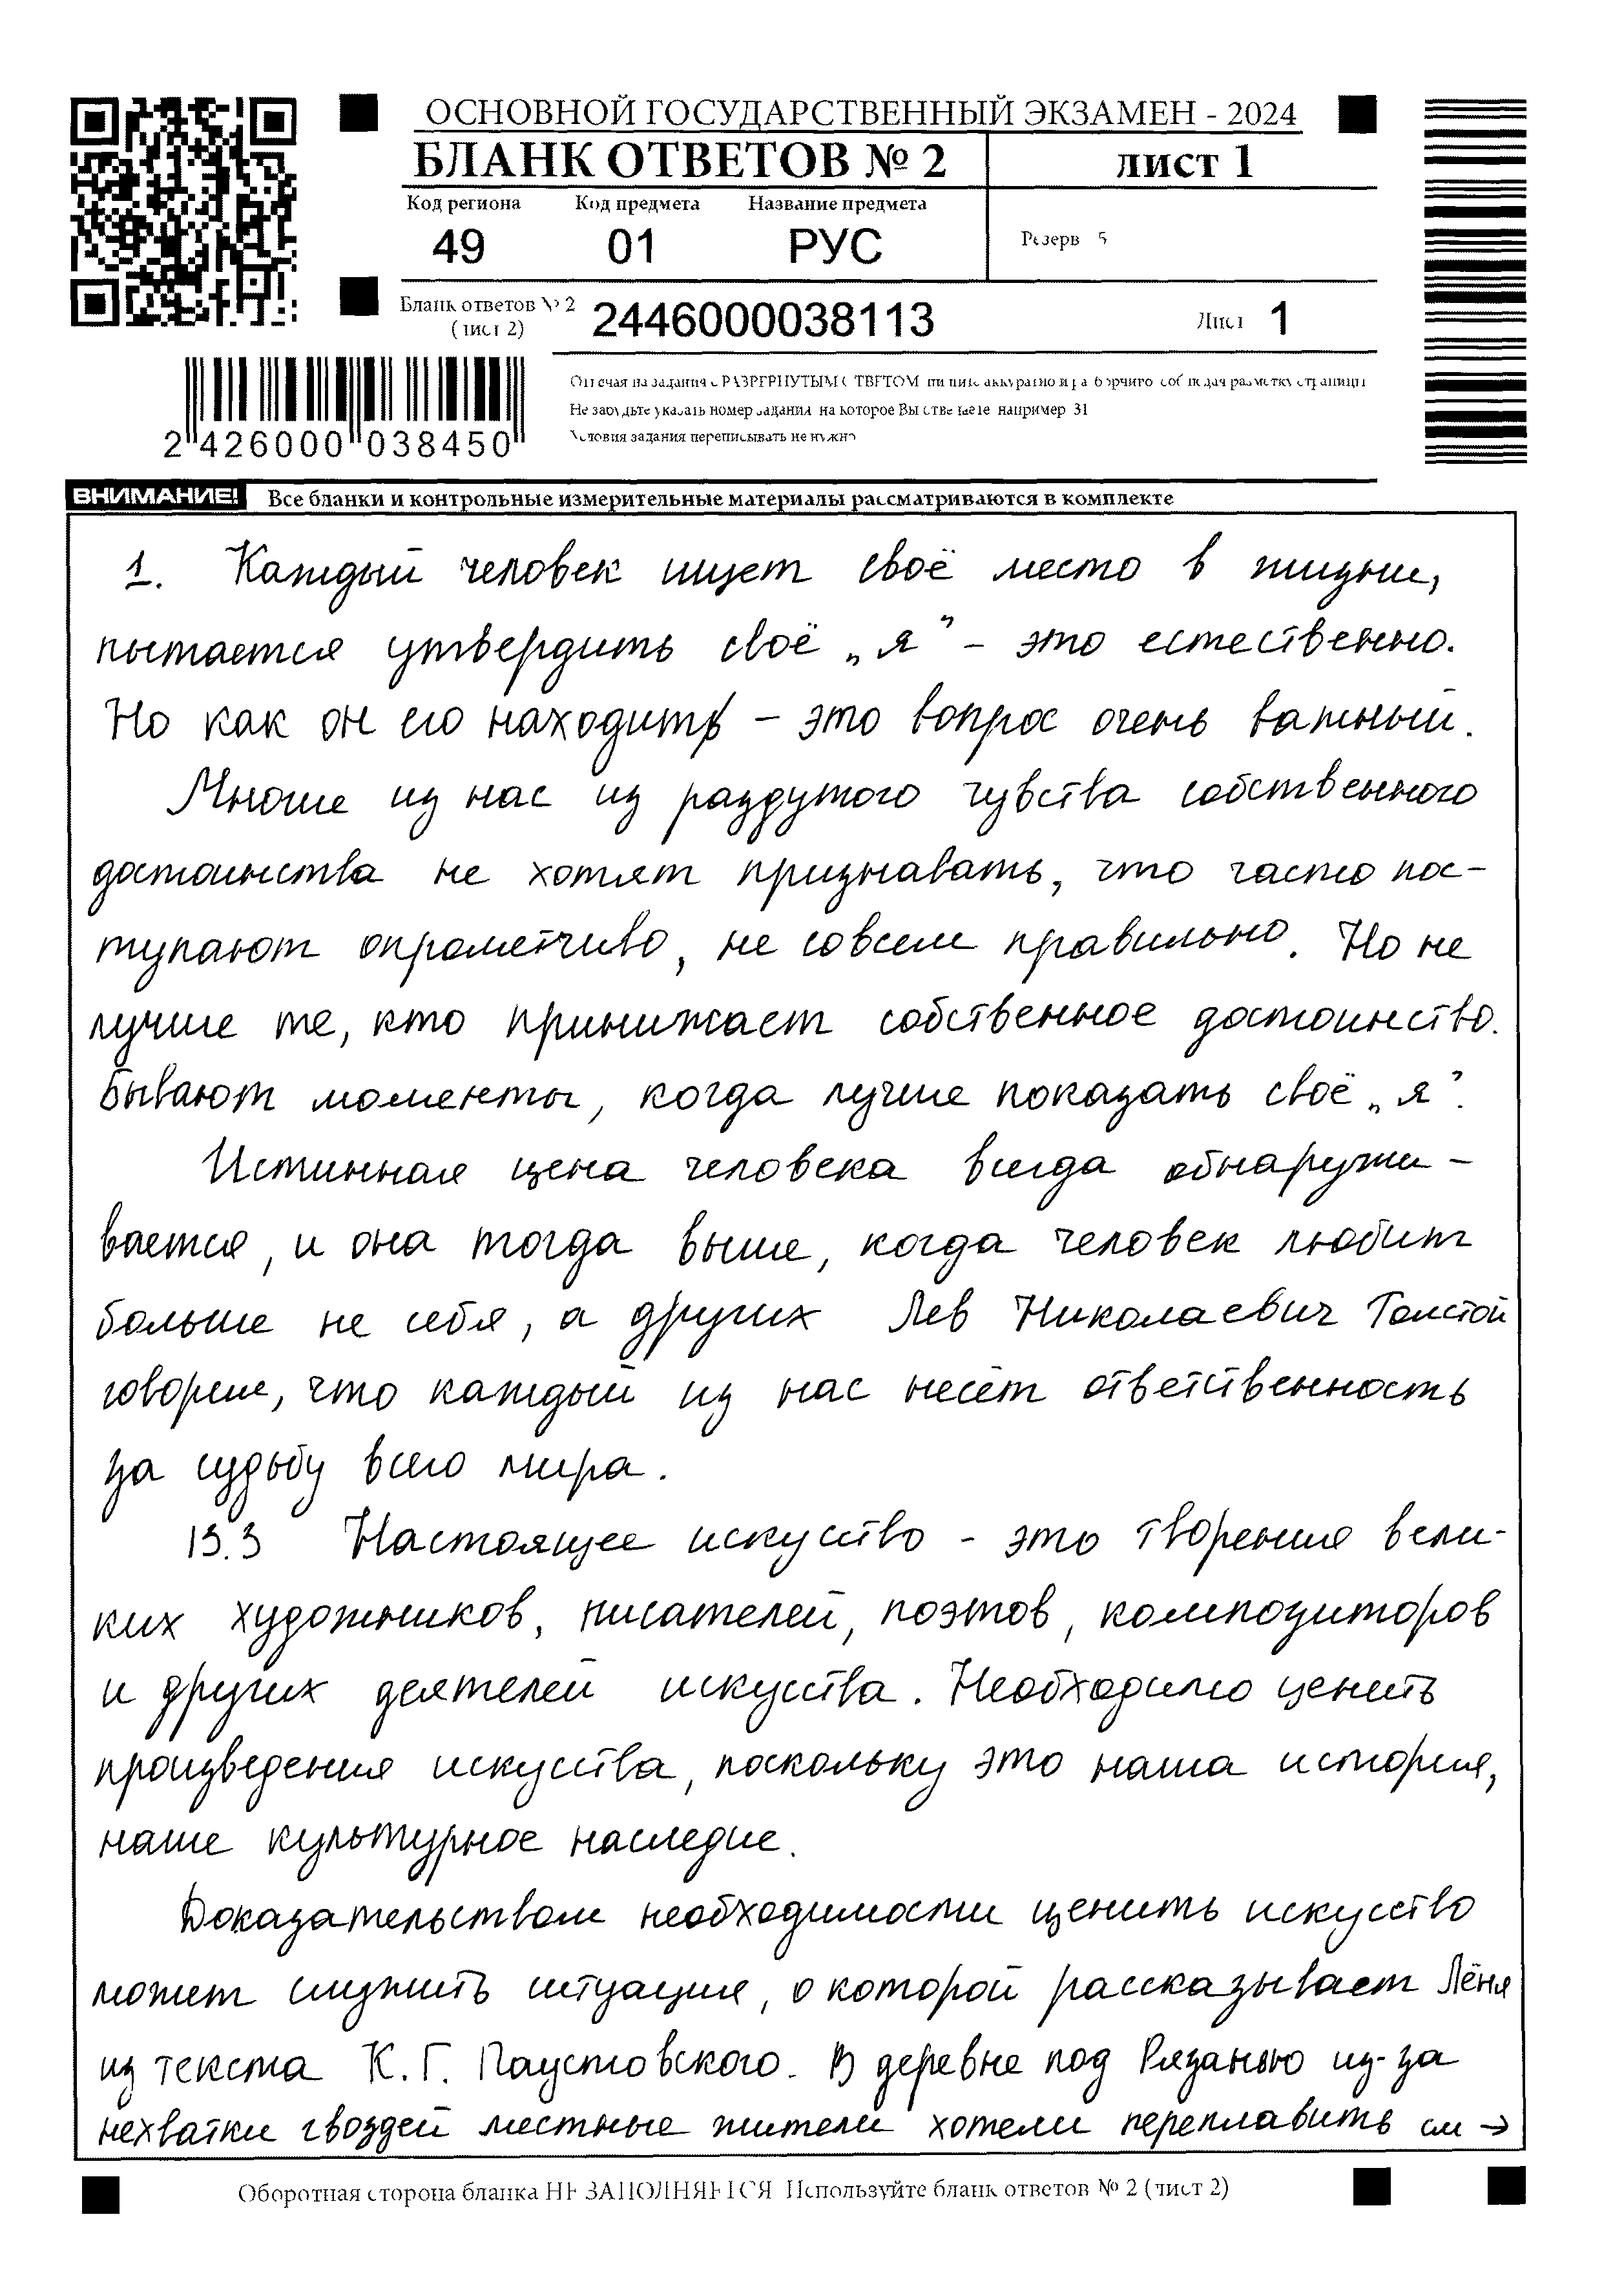 ОСНОВНОЙ ГОСУДАРСТВЕННЫЙ ЭКЗАМЕН - 2024
БЛАНК ОТВЕТОВ № 2
лист 1
Код региона Код предмета Название предмета
49 01 РУС
Резерв 5
Бланк ответов № 2
(лист 2)
2446000038113
Лист 1
2 426000 038450
Отвечая на задания с РАЗВЕРНУТЫМ ОТВЕТОМ, пишите аккуратно и разборчиво, соблюдая разметку страницы
Не забудьте указать номер задания, на которое Вы отвечаете, например 31
Условия задания переписывать не нужно
ВНИМАНИЕ! Все бланки и контрольные измерительные материалы рассматриваются в комплекте
1. Каждый человек ищет своё место в жизни,
пытается утвердить своё „я” - это естественно.
Но как он его находить - это вопрос очень важный.
Многие из нас из раздутого чувства собственного
достоинства не хотят признавать, что часто пос-
тупают опрометчиво, не совсем правильно. Но не
лучше те, кто принижает собственное достоинство.
Бывают моменты, когда лучше показать своё „я”.
Истинная цена человека всегда обнаружи-
вается, и она тогда выше, когда человек любит
больше не себя, а других Лев Николаевич Толстой
говорил, что каждый из нас несёт ответственность
за судьбу всего мира.
13.3 Настоящее искуство - это творения вели-
ких художников, писателей, поэтов, композиторов
и других деятелей искусства. Необходимо ценить
произведения искусства, поскольку это наша история,
наше культурное наследие.
Доказательством необходимости ценить искусство
может служить ситуация, о которой рассказывает Лёня
из текста К.Г. Паустовского. В деревне под Рязанью из-за
нехватки гвоздей местные жители хотели переплавить см →
Оборотная сторона бланка НЕ ЗАПОЛНЯЕТСЯ Используйте бланк ответов № 2 (лист 2)